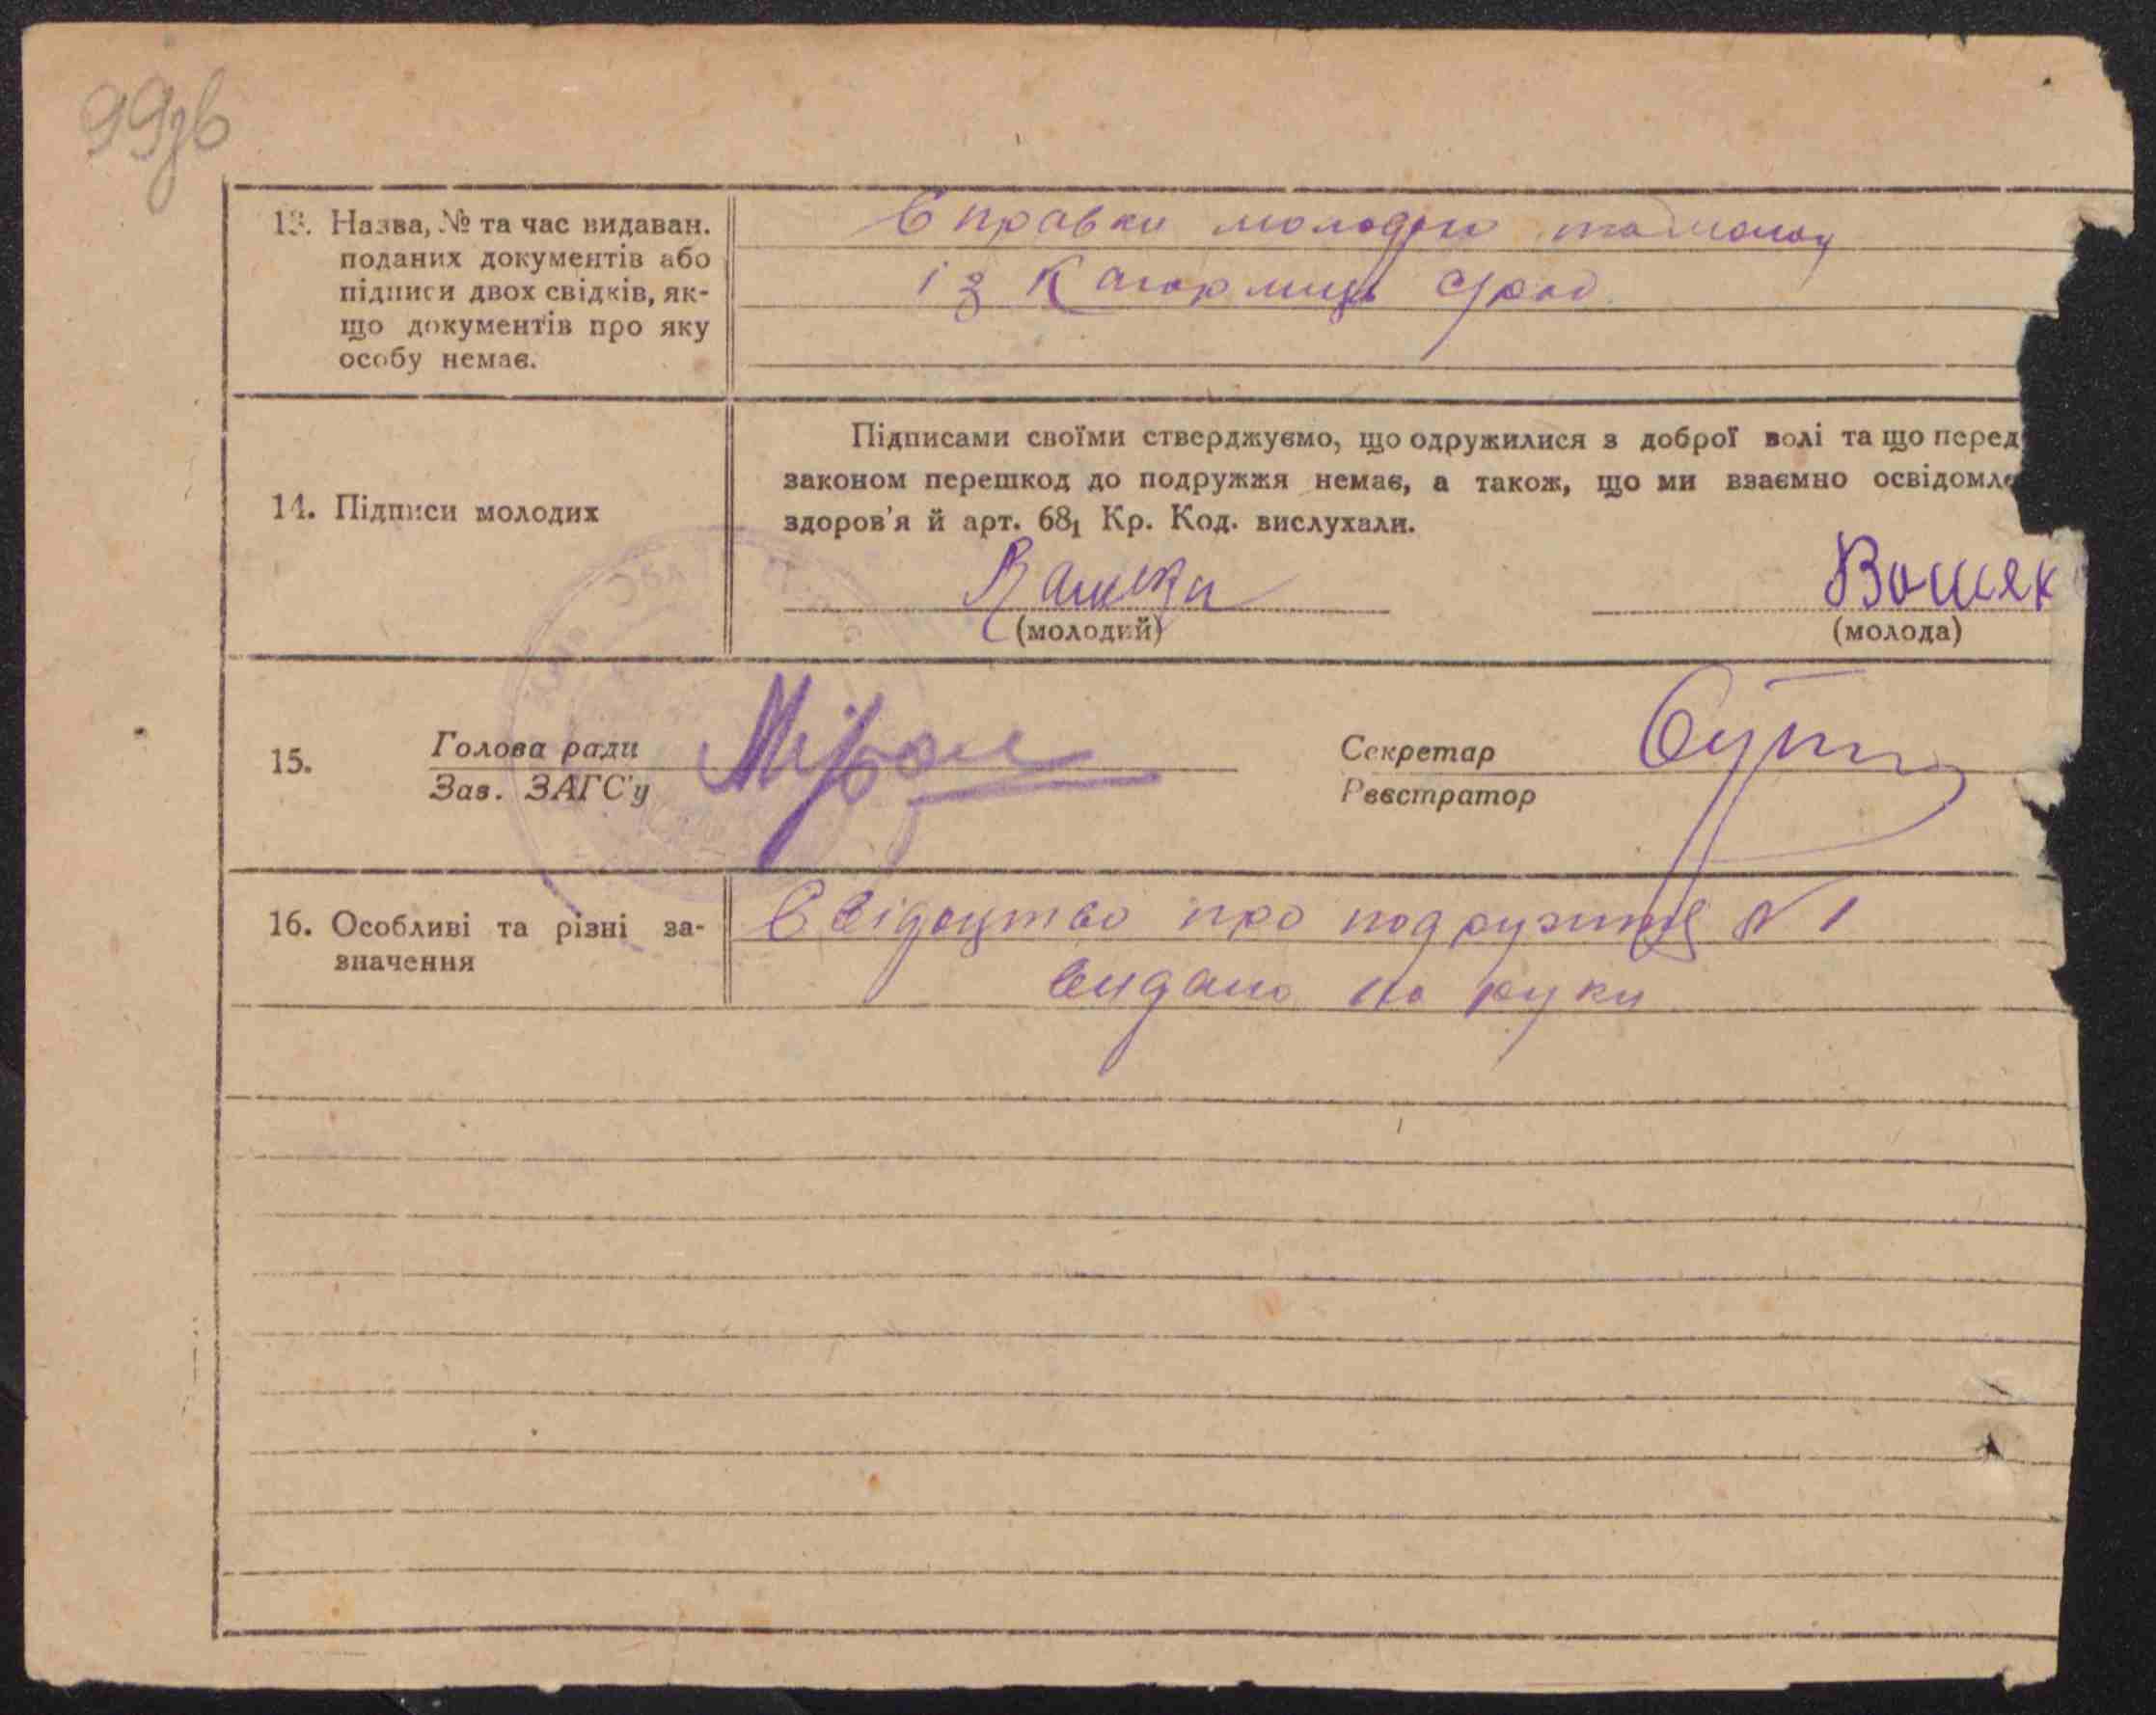 99зв
13. Назва, № та час видаван.
поданих документів або
підписи двох свідків, як-
що документів про яку
особу немає.
Справки молодого та молод
із Кагарлиць с/рад.
14. Підписи молодих
Підписами своїми стверджуємо, що одружилися з доброї волі та що перед
законом перешкод до подружжя немає, а також, що ми взаємно освідомле
здоров'я й арт. 68₁ Кр. Код. вислухали.
(молодий)
(молода)
15. Голова ради
Зав. ЗАГС'у
Секретар
Реєстратор
16. Особливі та різні за-
значення
Свідоцтво про подружжя № 1
видано на руки